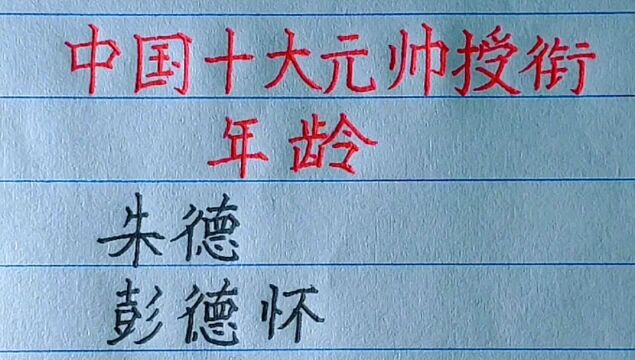 中国十大元帅授衔
年龄
朱德
彭德怀